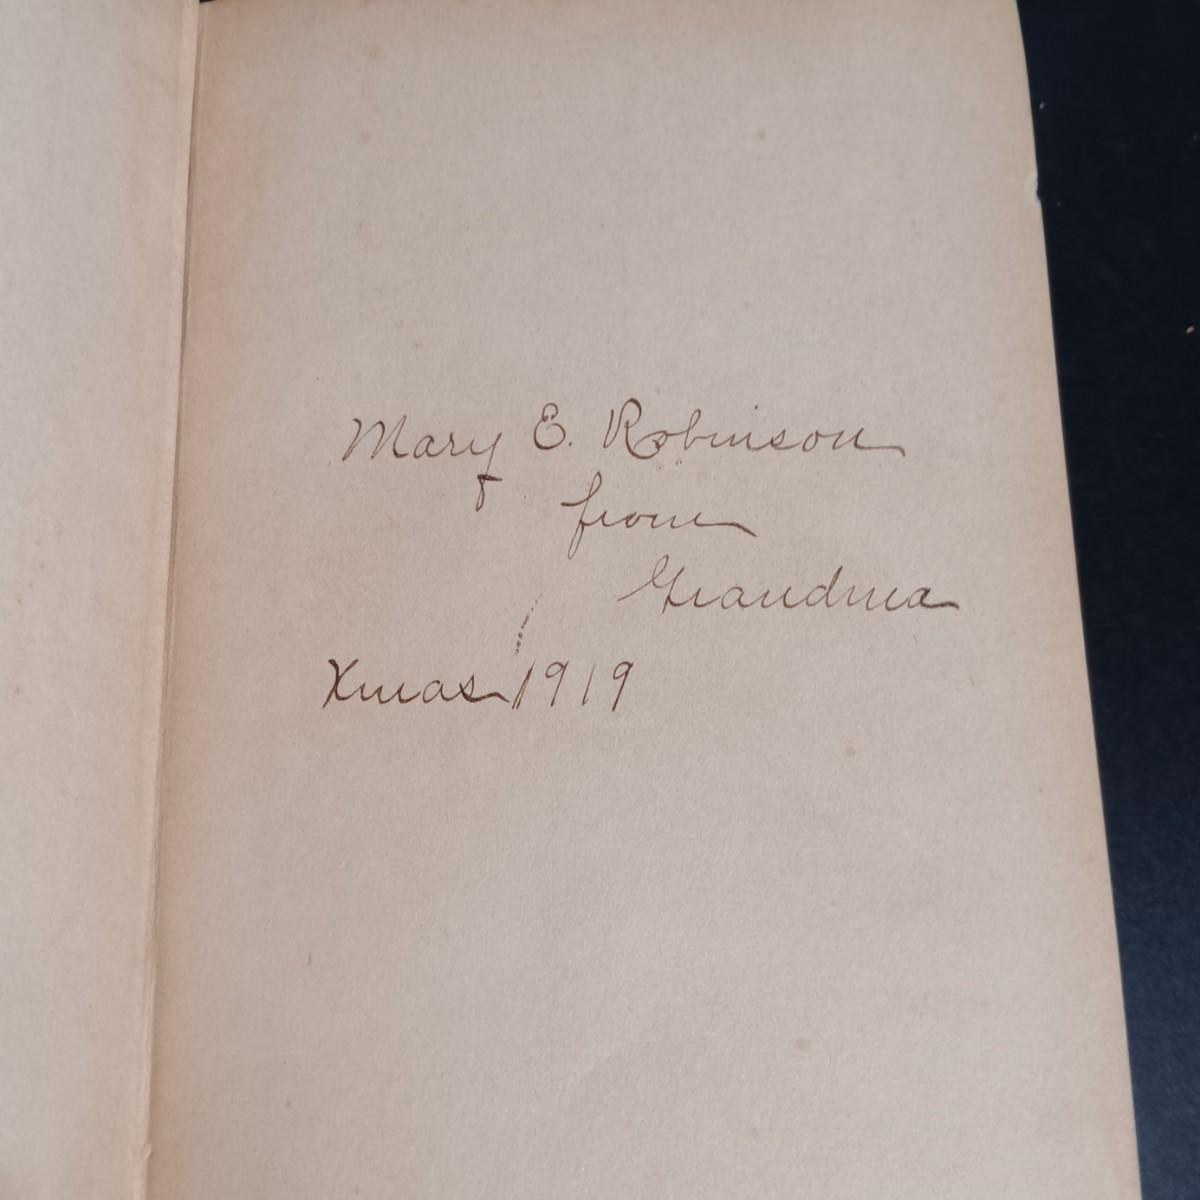 Mary E. Robinson
from
Grandma
Xmas 1919